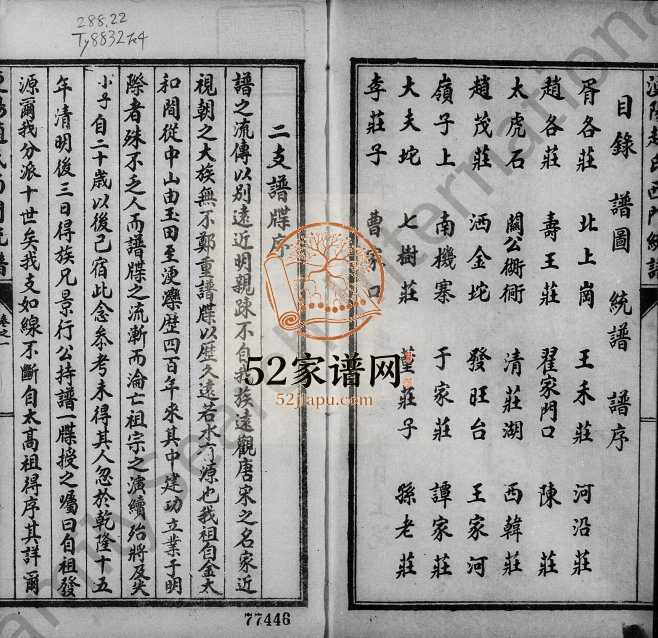 288.22
Ty8832
目錄 譜圖 統譜 譜序
胥各莊 北上崗 王禾莊 河沿莊
趙各莊 壽王莊 翟家門口 陳莊
太虎石 關公衚衕 清莊湖 西韓莊
趙茂莊 洒金坨 發旺台 王家河
嶺子上 南機寨 于家莊 譚家莊
大夫坨 七樹莊 莊子 孫老莊
李莊子 曹家口
二支譜牒序
譜之流傳以別遠近明親疎不自我族遠觀唐宋之名家近
視朝之大族無不鄭重譜牒以歷久遠若水有源也我祖自金太
和間從中山由玉田至浭灤歷四百年來其中建功立業于明
際者殊不乏人而譜牒之流漸而淪亡祖宗之演續紹將及矣
小子自二十歲以後已宿此念參考未得其人忽於乾隆十五
年清明後三日得族兄景行公持譜一牒授之囑曰自祖發
源爾我分派十世矣我支如線不斷自太高祖得序其詳爾
卷之一
52家谱网
52jiapu.com
77446